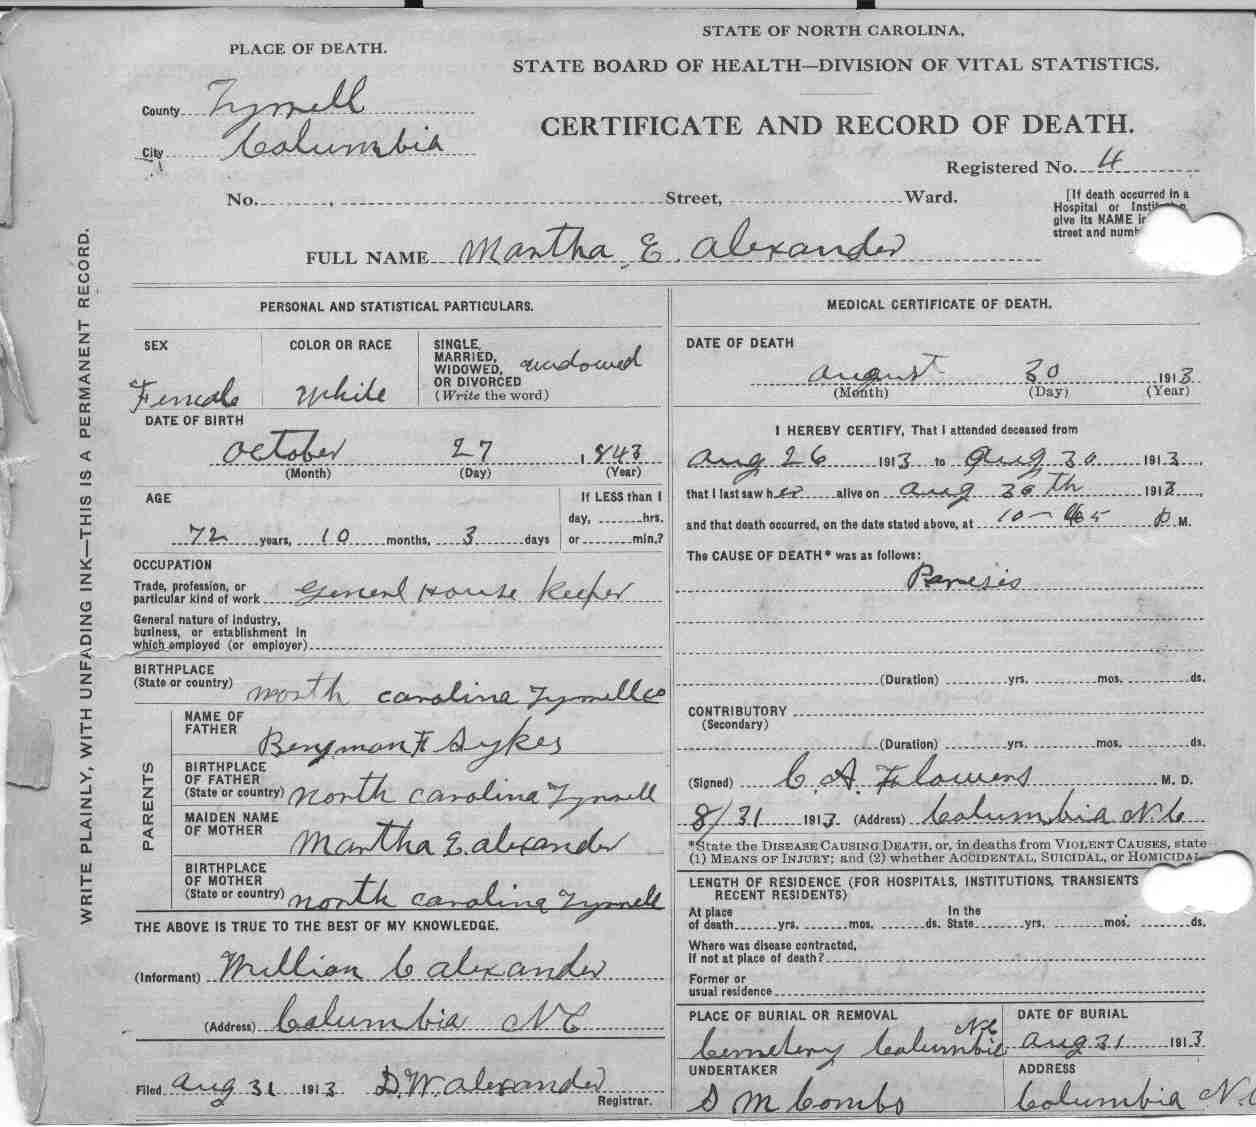 STATE OF NORTH CAROLINA,
STATE BOARD OF HEALTH—DIVISION OF VITAL STATISTICS.
CERTIFICATE AND RECORD OF DEATH.
PLACE OF DEATH.
County Tyrrell
City Columbia
Registered No. 4
No. , Street, Ward.
[If death occurred in a
Hospital or
give its NAME
street and
FULL NAME Martha E. Alexander
WRITE PLAINLY, WITH UNFADING INK—THIS IS A PERMANENT RECORD.
PERSONAL AND STATISTICAL PARTICULARS.
SEX
Female
COLOR OR RACE
White
SINGLE,
MARRIED,
WIDOWED,
OR DIVORCED
(Write the word)
widowed
DATE OF BIRTH
October 27 , 1843
(Month) (Day) (Year)
AGE
72 years, 10 months, 3 days
If LESS than 1
day, hrs.
or min.?
OCCUPATION
Trade, profession, or
particular kind of work General House Keeper
General nature of industry,
business, or establishment in
which employed (or employer)
BIRTHPLACE
(State or country) North Carolina Tyrrell Co
PARENTS
NAME OF
FATHER
Benjman F Sykes
BIRTHPLACE
OF FATHER
(State or country) North Carolina Tyrrell
MAIDEN NAME
OF MOTHER
Martha E. Alexander
BIRTHPLACE
OF MOTHER
(State or country) North Carolina Tyrrell
THE ABOVE IS TRUE TO THE BEST OF MY KNOWLEDGE.
(Informant) C Alexander
(Address) Columbia NC
Filed Aug 31 1913 D.W. Alexander
Registrar.
MEDICAL CERTIFICATE OF DEATH.
DATE OF DEATH
August 30 1913
(Month) (Day) (Year)
I HEREBY CERTIFY, That I attended deceased from
Aug 26 1913 to Aug 30 1913,
that I last saw her alive on Aug 30th 1913,
and that death occurred, on the date stated above, at 10-45 P M.
The CAUSE OF DEATH* was as follows:
Paresis
(Duration) yrs. mos. ds.
CONTRIBUTORY
(Secondary)
(Duration) yrs. mos. ds.
(Signed) C. A. Flowers M. D.
8/31 1913 (Address) Columbia N.C
*State the DISEASE CAUSING DEATH, or, in deaths from VIOLENT CAUSES, state
(1) MEANS OF INJURY; and (2) whether ACCIDENTAL, SUICIDAL, or HOMICIDAL
LENGTH OF RESIDENCE (FOR HOSPITALS, INSTITUTIONS, TRANSIENTS
RECENT RESIDENTS)
At place
of death yrs. mos. ds.
In the
State yrs. mos. ds.
Where was disease contracted,
if not at place of death?
Former or
usual residence
PLACE OF BURIAL OR REMOVAL
Cemetery Columbia NC
DATE OF BURIAL
Aug 31 1913
UNDERTAKER
S M Combs
ADDRESS
Columbia N.C